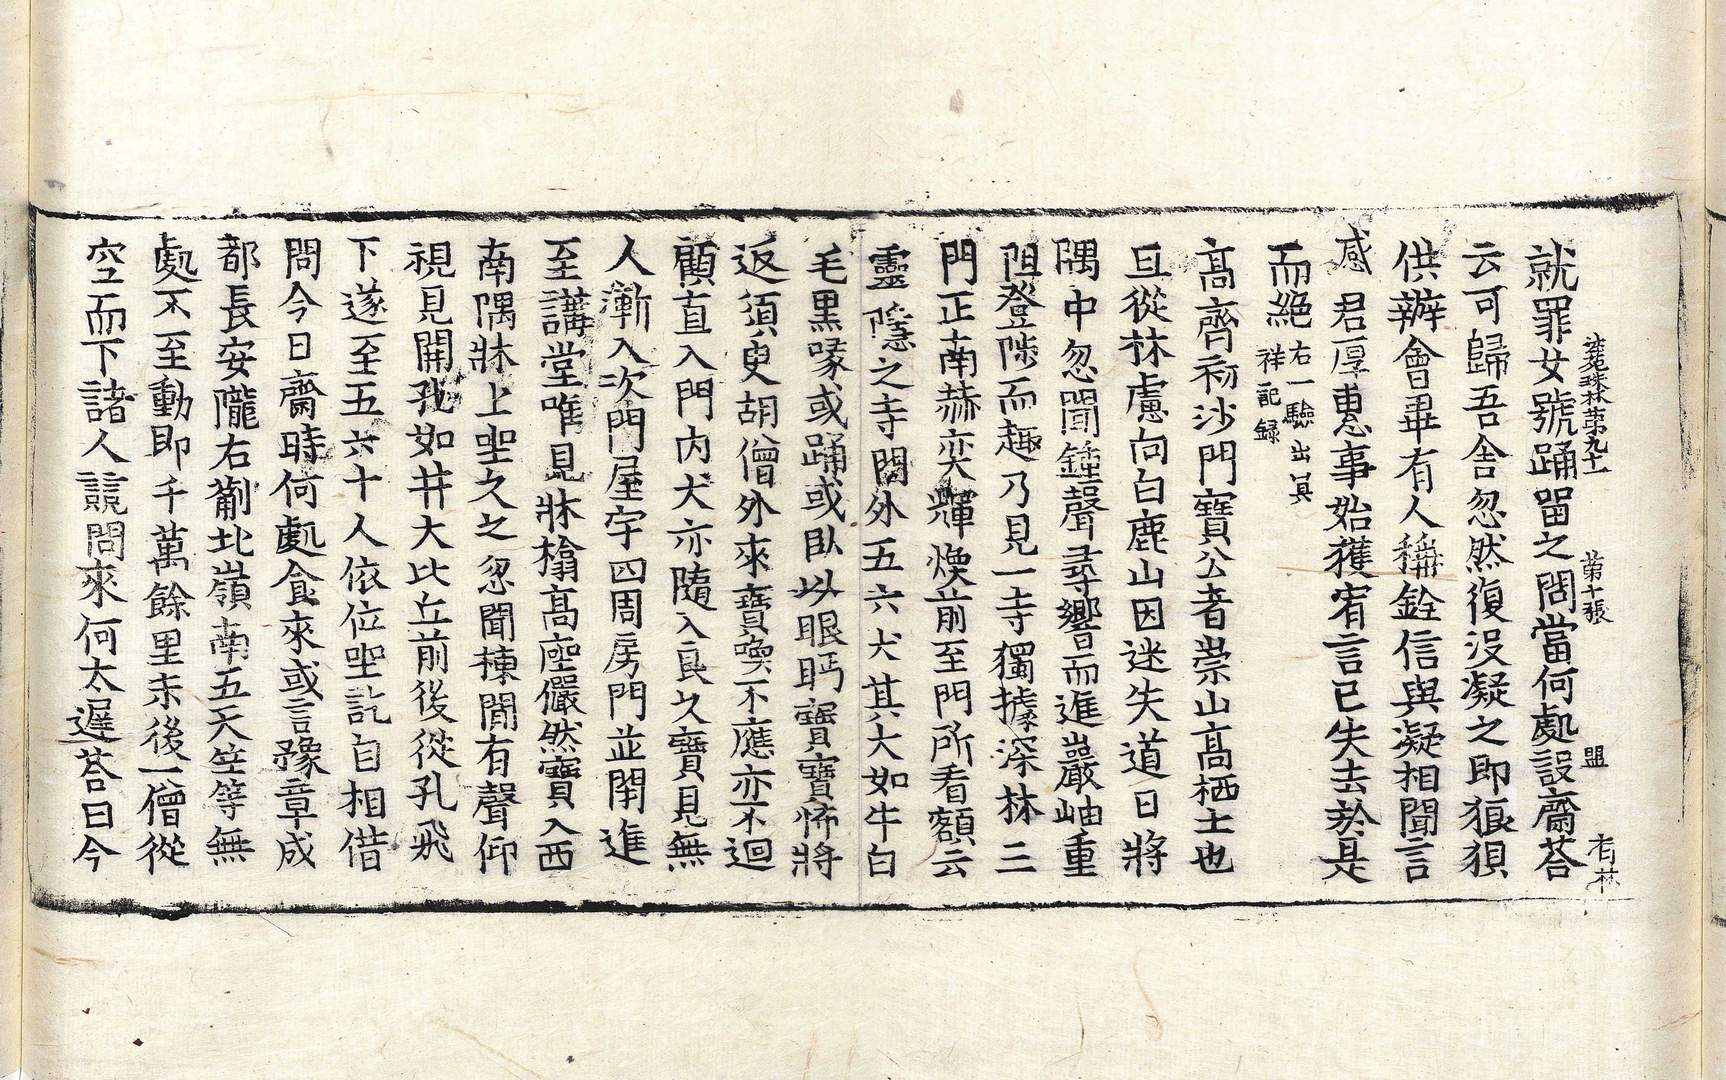 法苑珠林第九十一 第十張 盟 有林
就罪女號踊留之問當何處設齋荅
云可歸吾舍忽然復没凝之即狼狽
供辦會畢有人稱銓信與凝相聞言
感君厚惠事始獲宥言已失去於是
而絶右一驗出冥祥記録
高齊初沙門寶公者崇山高栖士也
旦從林慮向白鹿山因迷失道日將
隅中忽聞鍾聲尋響而進巖岫重
阻登陟而趣乃見一寺獨據深林三
門正南赫奕輝煥前至門所看額云
靈隱之寺門外五六犬其大如牛白
毛黒喙或踊或臥以眼眄寶寶怖將
返須臾胡僧外來寶喚不應亦不迴
顧直入門内犬亦隨入良久寶見無
人漸入次門屋宇四周房門並閉進
至講堂唯見牀榻高座儼然寶入西
南隅牀上坐久之忽聞棟間有聲仰
視見開孔如井大比丘前後從孔飛
下遂至五六十人依位坐訖自相借
問今日齋時何處食來或言豫章成
都長安隴右薊北嶺南五天竺等無
處不至動即千萬餘里末後一僧從
空而下諸人競問來何太遲荅曰今